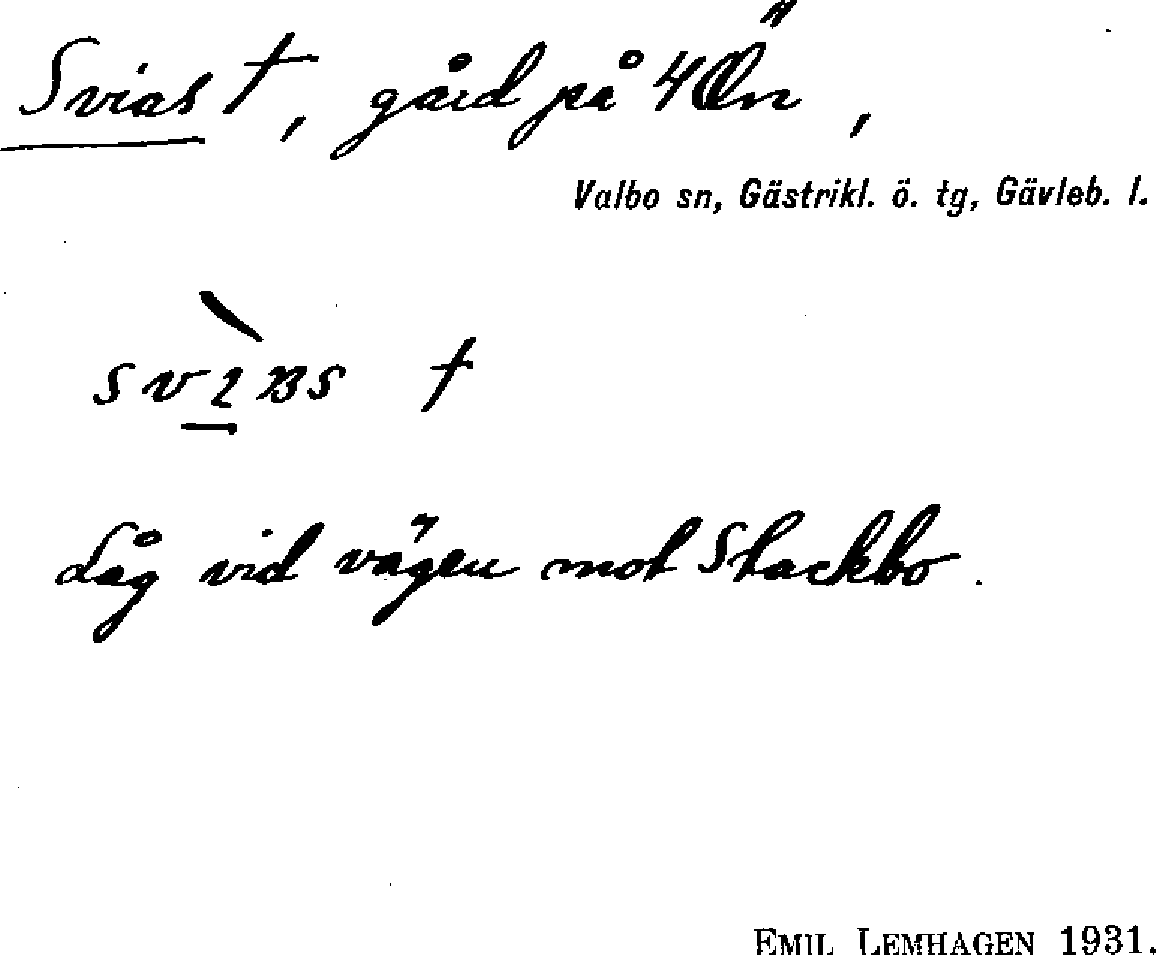 Svias †, gård på 4 Ön,
Valbo sn, Gästrikl. ö. tg, Gävleb. l.
†
Låg vid vägen mot Stackbo.
EMIL LEMHAGEN 1931.